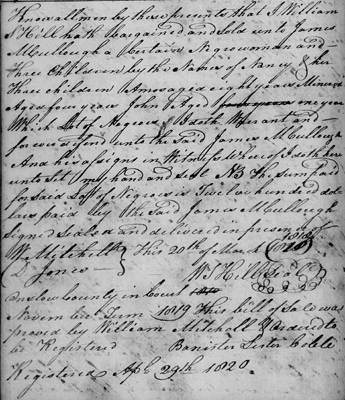 Know all men by these presents that I William
S Hill hath Bargained and Sold unto James
McCullough a certain Negrowoman and
three Children by the Name of Nancy & her
three children Amos aged eight years Minerva
Aged four years John Aged one year
Which Lot of Negroes I doeth Warant and
forever defend unto the Said James McCullough
And his asigns in Witness Whereof I doeth here
unto Set my hand and Seal NB The Sum paid
for Said Lot of Negroes is Twelve hundred dol
lars paid by the Said James McCullough
Signed Sealed and delivered in presents of
Wm Mitchell } This 20th of March 1818
D Jones } Wm S Hill Seal
Onslow County in Court
Novem ber Term 1819 This bill of Sale was
proved by William Mitchell & ordered to
be Registered Banister Lester
Registered Apl 29th 1820